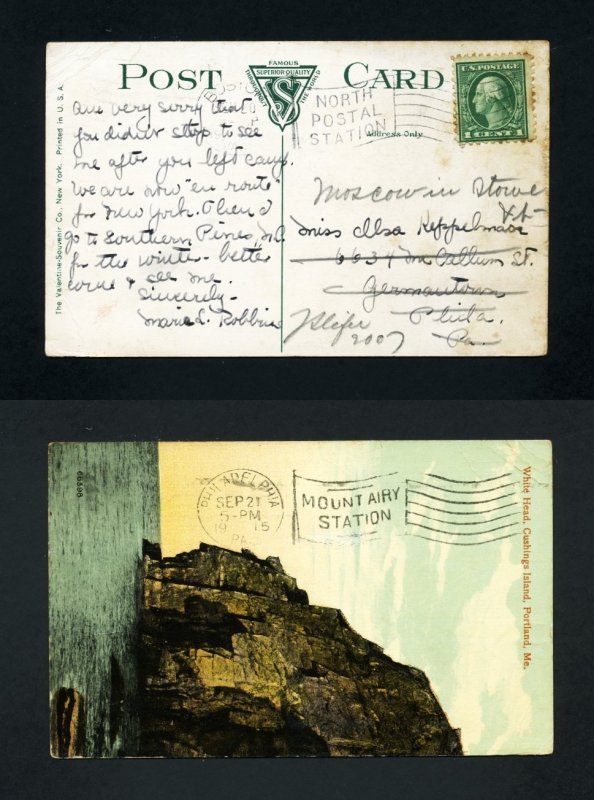 POST CARD
FAMOUS
SUPERIOR QUALITY
THROUGHOUT
THE WORLD
VS
U.S. POSTAGE
1 CENT 1
BOSTON
NORTH
POSTAL
STATION
Address Only
The Valentine-Souvenir Co., New York. Printed in U.S.A.
Am very sorry that
you didn't stop to see
me after you left camp.
We are now "en route"
for New York. Then I
go to Southern Pines, N.C.
for the winter - better
come & see me.
Sincerely -
Marie L. Robbins
Moscow in Stowe
Vt
Miss Ilsa Keppelmann
6634 McCallum St.
Germantown
Phila.
Pa.
2007
White Head, Cushings Island, Portland, Me.
66398
PHILADELPHIA
SEP 21
5-PM
1915
PA.
MOUNT AIRY
STATION